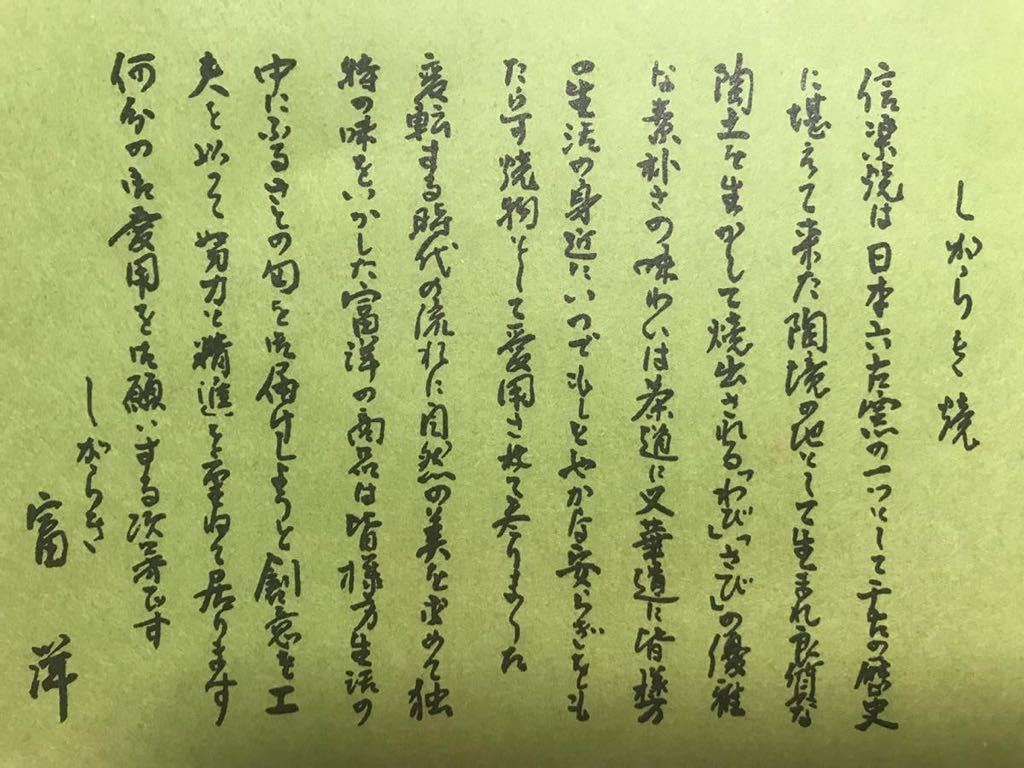 しがらき焼
信楽焼は日本六古窯の一つにして千古の歴史
に堪えて来た陶境の地として生まれ良質な
陶土を生かして焼出される「わび」「さび」の優雅
な素朴さの味わいは茶道に又華道に皆様方
の生活の身近にいつでもしとやかな安らぎをも
たらす焼物として愛用され来て参りました
変転する時代の流れに自然の美を求めて独
特の味をいかした富洋の商品は皆様方生活の
中にふるさとの匂を御届けしようと創意と工
夫を以って努力と精進を重ねて居ります
何分の御愛用を御願いする次第です
しがらき
富洋